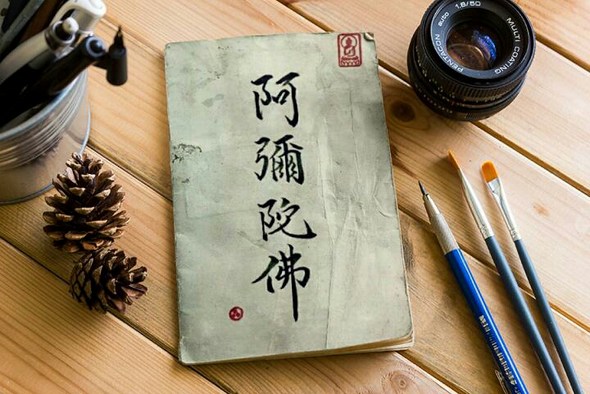 阿彌陀佛
PENTACON auto 1.8/50 MULTI COATING